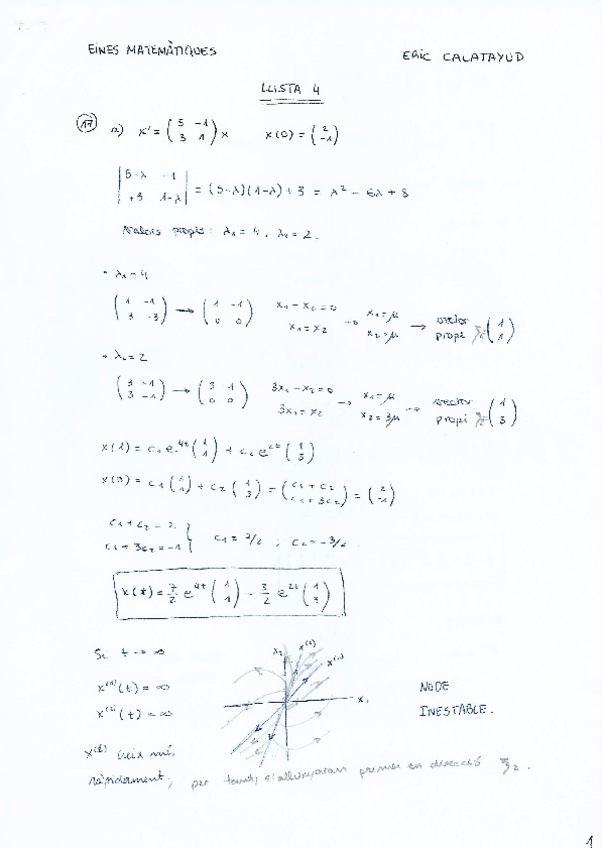 EINES MATEMÀTIQUES
ERIC CALATAYUD
LLISTA 4
17 a) x' = (5 -1 / 3 1) x    x(0) = (2 / -1)
|5-λ -1 / +3 1-λ| = (5-λ)(1-λ)+3 = λ² - 6λ + 8
Valors propis: λ₁ = 4, λ₂ = 2.
• λ₁ = 4
(1 -1 / 3 -3) → (1 -1 / 0 0)    x₁ - x₂ = 0    x₁ = x₂ → x₁ = μ    x₂ = μ → vector propi (1 / 1)
• λ₂ = 2
(3 -1 / 3 -1) → (3 1 / 0 0)    3x₁ - x₂ = 0    3x₁ = x₂ → x₁ = μ    x₂ = 3μ → vector propi (1 / 3)
x(t) = c₁ e⁴ᵗ (1 / 1) + c₂ e²ᵗ (1 / 3)
x(0) = c₁ (1 / 1) + c₂ (1 / 3) = (c₁ + c₂ / c₁ + 3c₂) = (2 / -1)
c₁ + c₂ = 2
c₁ + 3c₂ = -1 } c₁ = 7/2 ; c₂ = -3/2.
x(t) = 7/2 e⁴ᵗ (1 / 1) - 3/2 e²ᵗ (1 / 3)
Si t → ∞
x⁽¹⁾(t) = ∞
x⁽²⁾(t) = ∞
x⁽²⁾
x⁽¹⁾
x₁
NODE
INESTABLE.
creix més
ràpidament, per tant, s'allunyaran primer en direcció ξ₂.
1